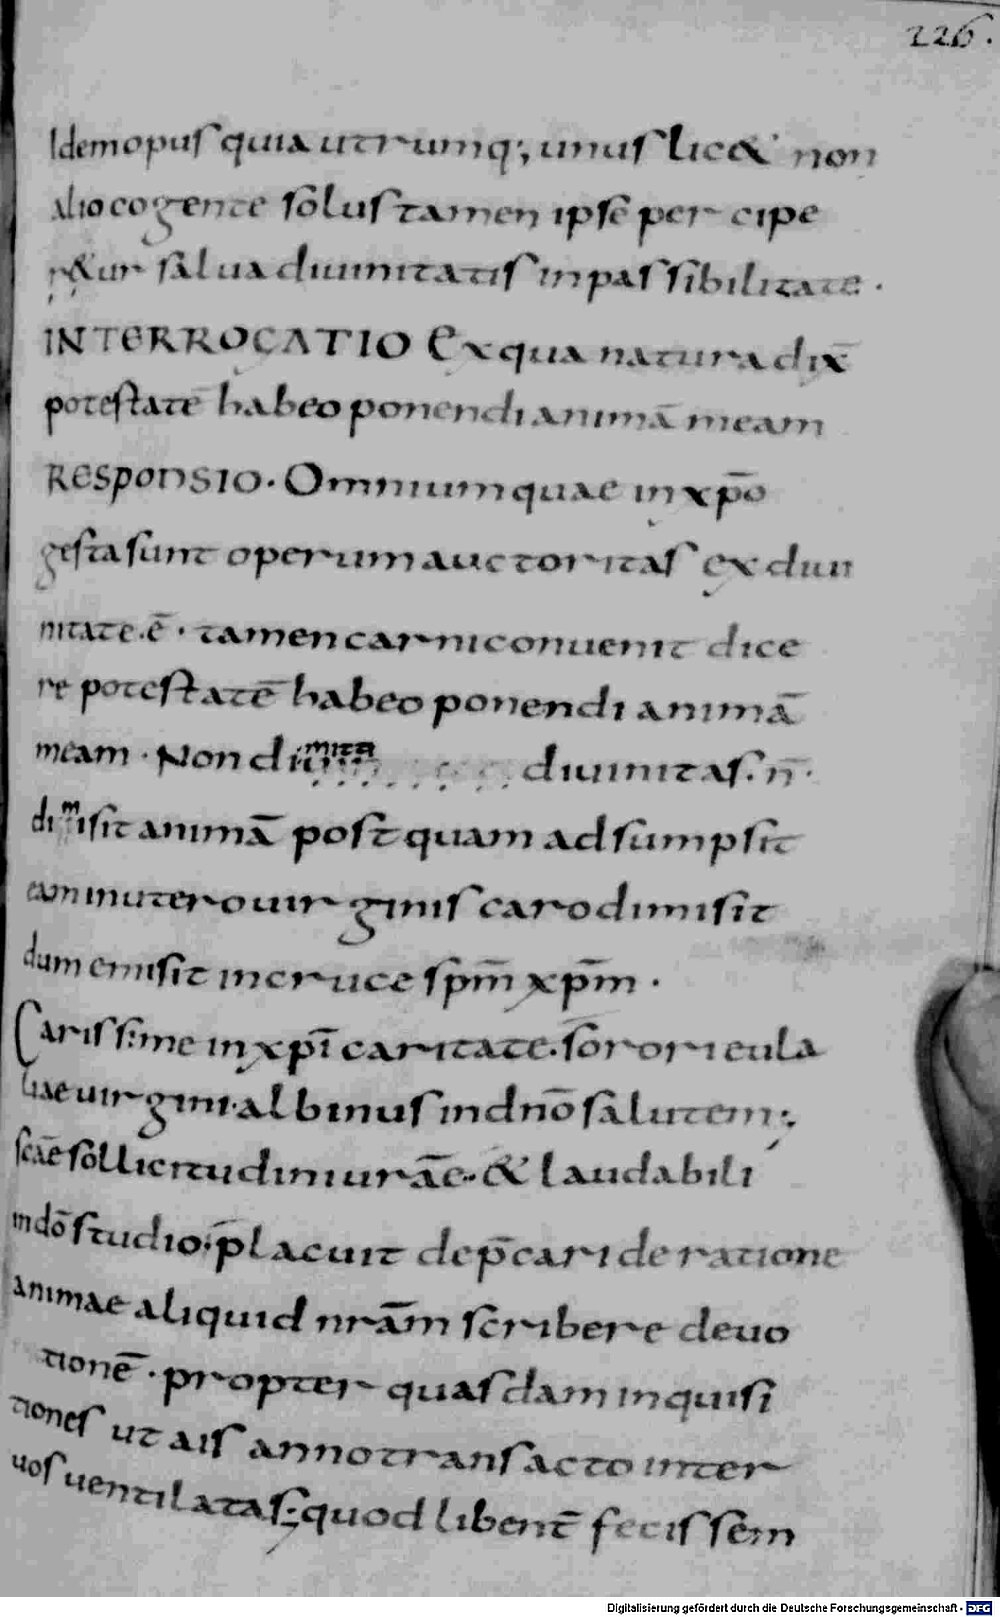 226.
Idem opus quia utrumq; unus lic& non
alio cogente solus tamen ipse percipe
r&ur salua diuinitatis inpassibilitate.
INTERROGATIO Ex qua natura dix̄
potestatē habeo ponendi animā meam
RESPONSIO. Omnium quae in xp̄o
gesta sunt operum auctoritas ex diui
nitate.ē. tamen carni conuenit dice
re potestatē habeo ponendi animā
meam. Non diuinita diuinitas. n̄.
dimisit animā postquam adsumpsit
eam in utero uirginis caro dimisit
dum emisit in cruce sp̄m xp̄m.
Carissime in xp̄i caritate. sorori eula
liae uirgini. albinus in dn̄o salutem;
sc̄ae sollicitudini ur̄ae. & laudabili
in dō studio; placuit dep̄cari de ratione
animae aliquid nr̄am scribere deuo
tionē. propter quasdam inquisi
tiones ut ais anno transacto inter
uos uentilatas; quod libent̄ fecissem
Digitalisierung gefördert durch die Deutsche Forschungsgemeinschaft - DFG